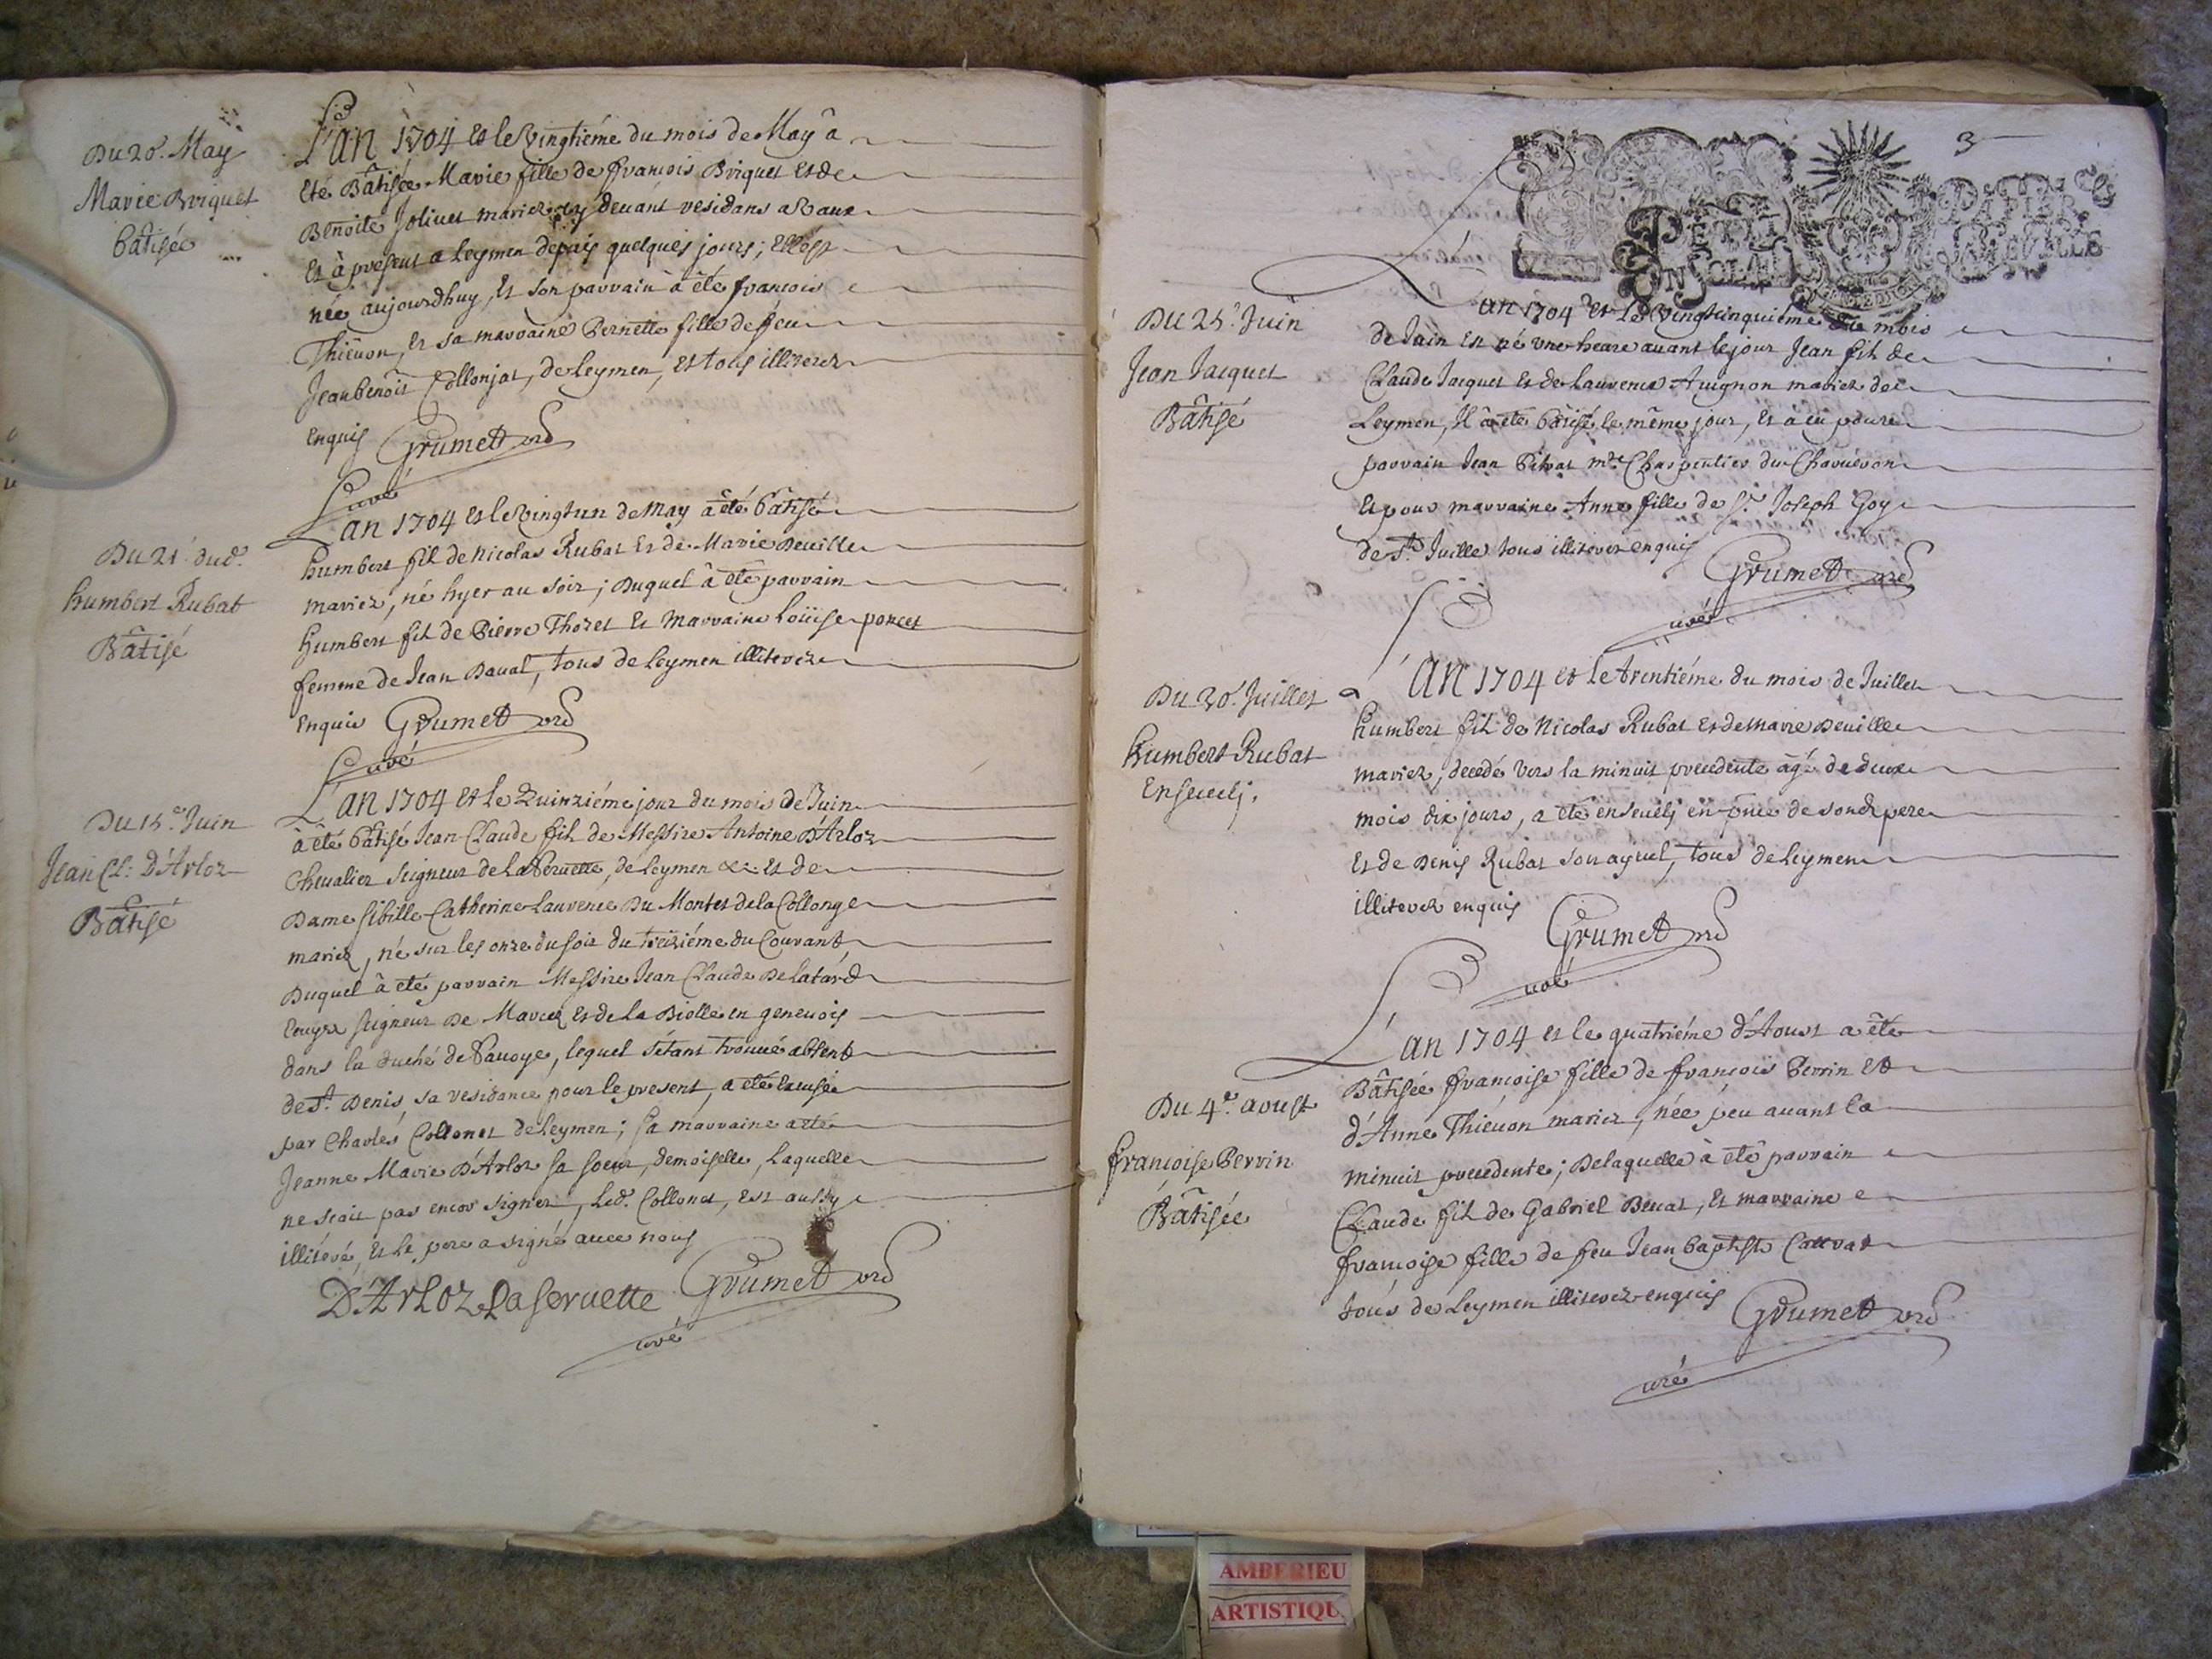 Du 20.e May
Marie Briquet
bâtisée
L'an 1704 et le vingtiéme du mois de May â
été Bâtisée Marie fille de françois Briquet et de
Benoite Jolivet mariez cy devant residans a Vaux
Et à present a Leymen depuis quelques jours; Ell'est
née aujourdhuy, Et son parrain à été françois
Thiévon, Et sa marraine Pernette fille de feu
Jean benoit Collonjat, de Leymen, Et tous illiterez
Enquis Grumet ord
Curé
Du 21.e dud.
humbert Rubat
Bâtisé
L'an 1704 et le vingtun de may â été bâtisé
humbert fil de Nicolas Rubat Et de Marie Deville
mariez, né hyer au soir; Duquel â été parrain
humbert fil de Pierre Thozet Et Marraine Loüise poncet
femme de Jean Daval, tous de Leymen illiterez
Enquis Grumet ord
Curé
Du 15.e Juin
Jean Cl: D'Arloz
Bâtisé
L'an 1704 Et le Quinziéme jour du mois de Juin
à été bâtisé Jean Claude fil de Messire Antoine D'Arloz
Chevalier Seigneur de La Servette, de Leymen &c. Et de
Dame Sibille Catherine Laurence Du Montet de la Collonge
mariez, né sur les onze du soir du treiziéme du Courant,
Duquel â été parrain Messire Jean Claude De Latard
Ecuyer Seigneur De Marcez Et de la Biolle en genevois
dans la duché de Savoye, lequel s'étant trouvé absent
de St. Denis, sa residance pour le present, a été Excusé
par Charles Collonet de Leymen; sa marraine a été
Jeanne Marie D'Arloz sa soeur, demoiselle, Laquelle
ne sçait pas encor signer, Led. Collonet, Est aussy
illiteré, Et le pere a signé avec nous
D'Arloz Laservette Grumet ord
curé
3
PETIT PAPIER
Du 25.e Juin
Jean Jacquet
Bâtisé
L'an 1704 et Le vingtcinquiéme du mois
de Juin Est né une heure avant le jour Jean fil de
Claude Jacquet Et de Laurence Avignon mariez de
Leymen, Il â été bâtisé le même jour, Et à eü pour
parrain Jean Pitrat m.re Charpentier du Charvéron
Et pour marraine Anne fille de S.r Joseph Goy
de St. Juille tous illiterez enquis
Grumet ord
curé
Du 30.e Juillet
humbert Rubat
Enseveli.
L'an 1704 et le trentiéme du mois de Juillet
humbert fil de Nicolas Rubat et de Marie Deville
mariez, decedé vers la minuit precedente âgé de deux
mois dix jours, a été enseveli en pñce de sond. pere
Et de Denis Rubat son ayeul, tous de Leymen
illiterez enquis
Grumet ord
curé
Du 4.e aoust
françoise Perrin
Bâtisée
L'an 1704 et le quatriéme d'Aoust a été
Bâtisée françoise fille de françois Perrin Et
d'Anne Thiévon mariez, née peu avant la
minuit precedente; De laquelle à été parrain
Claude fil de Gabriel Benat, Et marraine
françoise fille de feu Jean baptiste Carrat
tous de Leymen illiterez enquis
Grumet ord
curé
AMBERIEU
ARTISTIQU